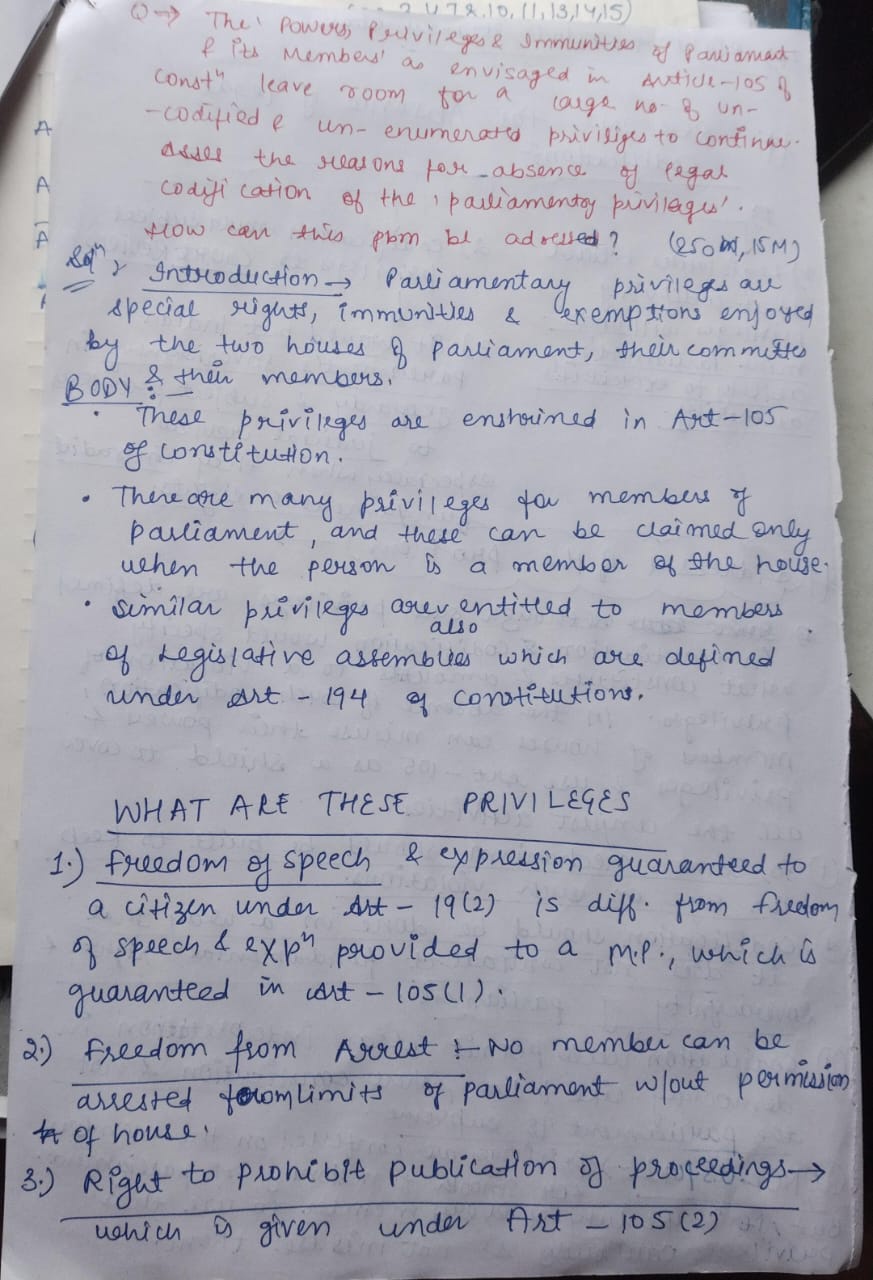 2 4 7 8, 10, 11, 13, 14, 15)
Q→ The 'Powers, Privileges & Immunities of Parliament
& its Members' as envisaged in Article-105 of
Constⁿ leave room for a large no. of un-
-codified & un-enumerated priviliges to continue.
Asses the reasons for absence of legal
codification of the 'parliamentary privilages'.
How can this pbm be adressed? (250 wd, 15M)
Solⁿ, Introduction → Parliamentary privileges are
special rights, immunities & exemptions enjoyed
by the two houses of parliament, their committes
& their members.
BODY :-
• These privileges are enshrined in Art-105
of constitution.
• There are many privileges for members of
parliament, and these can be claimed only
when the person is a member of the house.
• Similar privileges are also entitled to members
of Legislative assemblies which are defined
under Art - 194 of constitutions.
WHAT ARE THESE PRIVILEGES
1.) freedom of speech & expression guaranteed to
a citizen under Art - 19(2) is diff. from fredom
of speech & expⁿ provided to a M.P., which is
guaranteed in Art - 105(1).
2.) freedom from Arrest :- No member can be
arrested from limits of parliament w/out permission
of house.
3.) Right to prohibit publication of proceedings→
which is given under Art - 105(2)
A
A
A